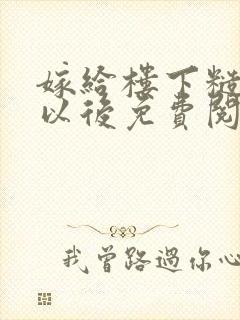 嫁給樓下糙
以後免費閱
我曾路過你心